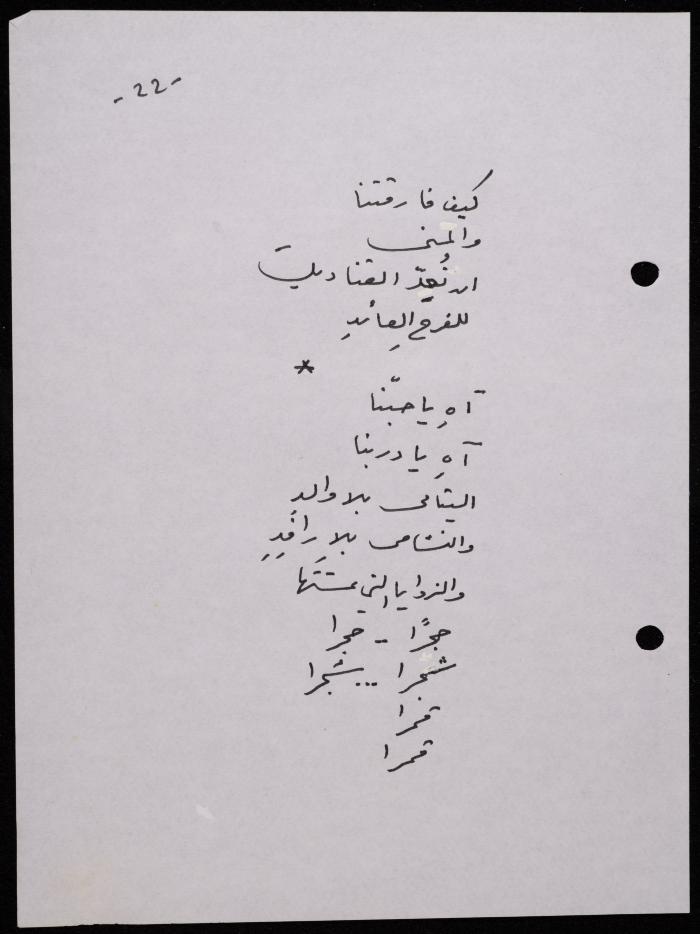 - 22 -
كيف فارقتنا
والمنى
ان نُعِدّ القناديلَ
للفرحِ العائدِ
*
آهِ يا حبّنا
آهِ يا دربنا
اليتامى بلا والدِ
والنشامى بلا رافِدِ
والزوايا التي عشتَها
حجرًا .. حجرا
شجرا ... شجرا
قمرا
قمرا